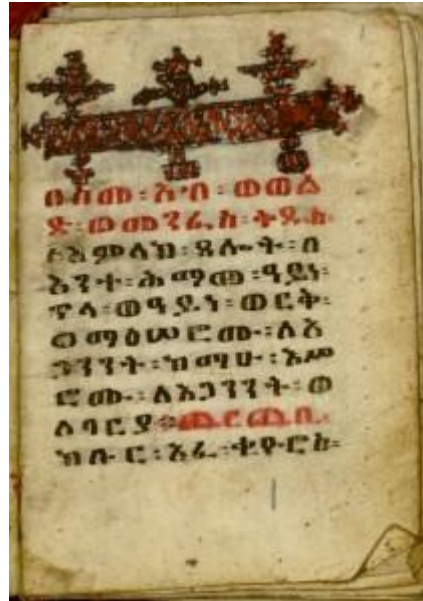 በስመ ፡ አብ ፡ ወወል
ድ ፡ ወመንፈስ ፡ ቅዱስ ፡
፩አምላክ ፡ ጸሎት ፡ በ
እንተ ፡ ሕማመ ፡ ዓይነ ፡
ጥላ ፡ ወዓይነ ፡ ወርቅ ፡
ወማዕሠሮሙ ፡ ለአ
ጋንንት ፡ ከማሁ ፡ እሥ
ሮሙ ፡ ለአጋንንት ፡ ወ
ለባርያ ።